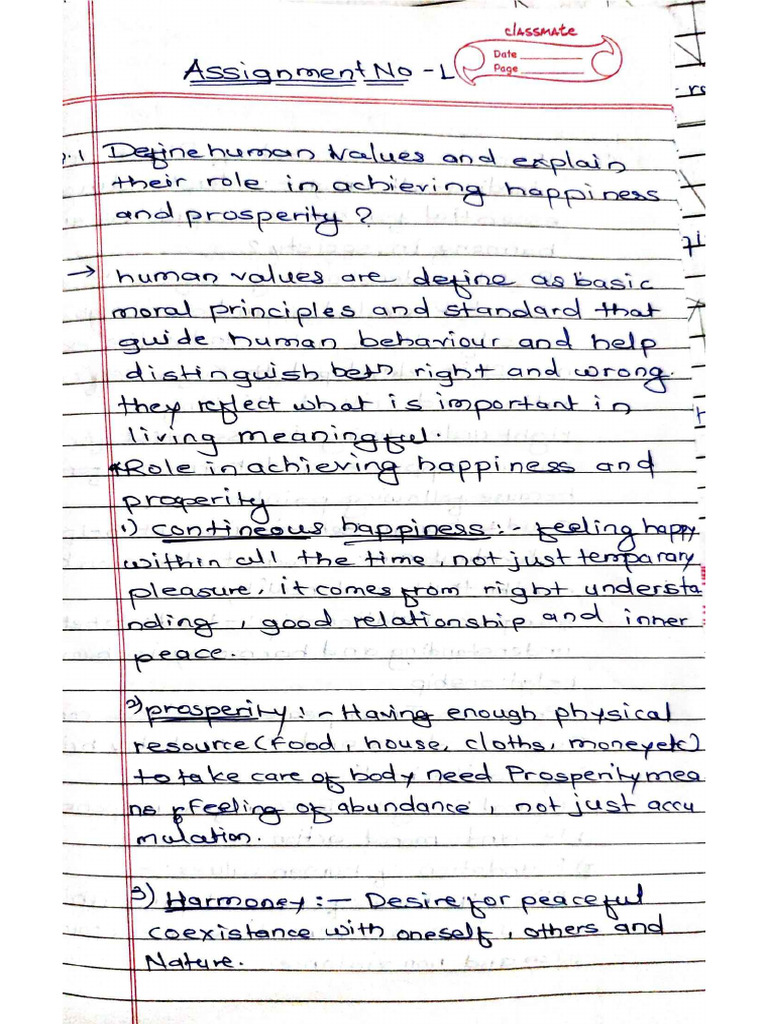 classmate
Date
Page
Assignment No - 1
Q.1 Define human values and explain
their role in achieving happiness
and prosperity ?
→ human values are define as basic
moral principles and standard that
guide human behaviour and help
distinguish betn right and wrong.
they reflect what is important in
living meaningful.
*Role in achieving happiness and
prosperity
1) contineous happiness :- feeling happy
within all the time, not just temparary
pleasure, it comes from right understa
nding, good relationship and inner
peace.
2) prosperity :- Having enough physical
resource (food, house, cloths, money etc)
to take care of body need Prosperity mea
ns feeling of abundance, not just accu
mulation.
3) Harmoney :- Desire for peaceful
coexistance with oneself, others and
Nature.